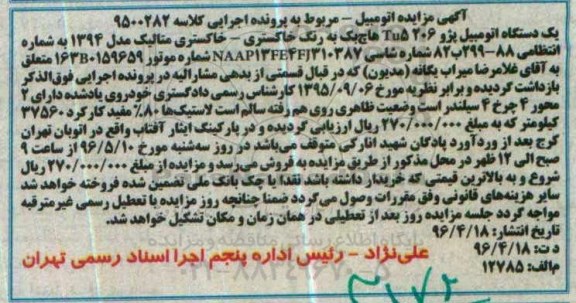 آگهی مزایده اتومبیل – مربوط به پرونده اجرایی کلاسه ۹۵۰۰۲۸۲
یک دستگاه اتومبیل پژو ۲۰۶ Tu5 هاچ‌بک به رنگ خاکستری – خاکستری متالیک مدل ۱۳۹۴ به شماره
انتظامی ۸۸–۲۹۹ب۸۲ شماره شاسی NAAP13FE4FJ310387 شماره موتور 163B0159659 متعلق
به آقای غلامرضا میراب یگانه (مدیون) که در قبال قسمتی از بدهی مشارالیه در پرونده اجرایی فوق‌الذکر
بازداشت گردیده و برابر نظریه مورخ ۱۳۹۵/۰۹/۰۶ کارشناس رسمی دادگستری خودروی یادشده دارای ۲
محور ۴ چرخ ۴ سیلندر است وضعیت ظاهری روی هم رفته سالم است لاستیک‌ها ۸۰٪ مفید کارکرد ۳۷۵۶۰
کیلومتر که به مبلغ ۲۷۰/۰۰۰/۰۰۰ ریال ارزیابی گردیده و در پارکینگ ایثار آفتاب واقع در اتوبان تهران
کرج بعد از وردآورد پادگان شهید انارکی متوقف می‌باشد در روز سه‌شنبه مورخ ۹۶/۵/۱۰ از ساعت ۹
صبح الی ۱۲ ظهر در محل مذکور از طریق مزایده به فروش می‌رسد و مزایده از مبلغ ۲۷۰/۰۰۰/۰۰۰ ریال
شروع و به بالاترین قیمتی که خریدار داشته باشد نقدا یا چک بانک ملی تضمین شده فروخته خواهد شد
سایر هزینه‌های قانونی وفق مقررات وصول می‌گردد ضمنا چنانچه روز مزایده با تعطیل رسمی غیرمترقبه
مواجه گردد جلسه مزایده روز بعد از تعطیلی در همان زمان و مکان تشکیل خواهد شد.
تاریخ انتشار: ۹۶/۴/۱۸
د ت: ۹۶/۴/۱۸
م‌الف: ۱۲۷۸۵
علی‌نژاد – رئیس اداره پنجم اجرا اسناد رسمی تهران